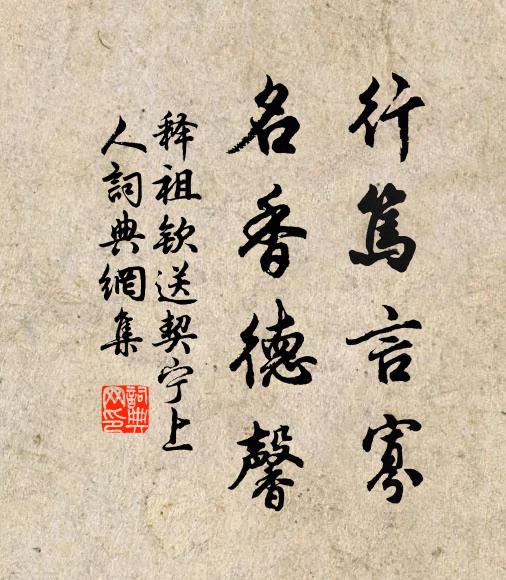 行篤言寡
名香德馨
释祖钦送契宁上
人詞典網集
詞典网印